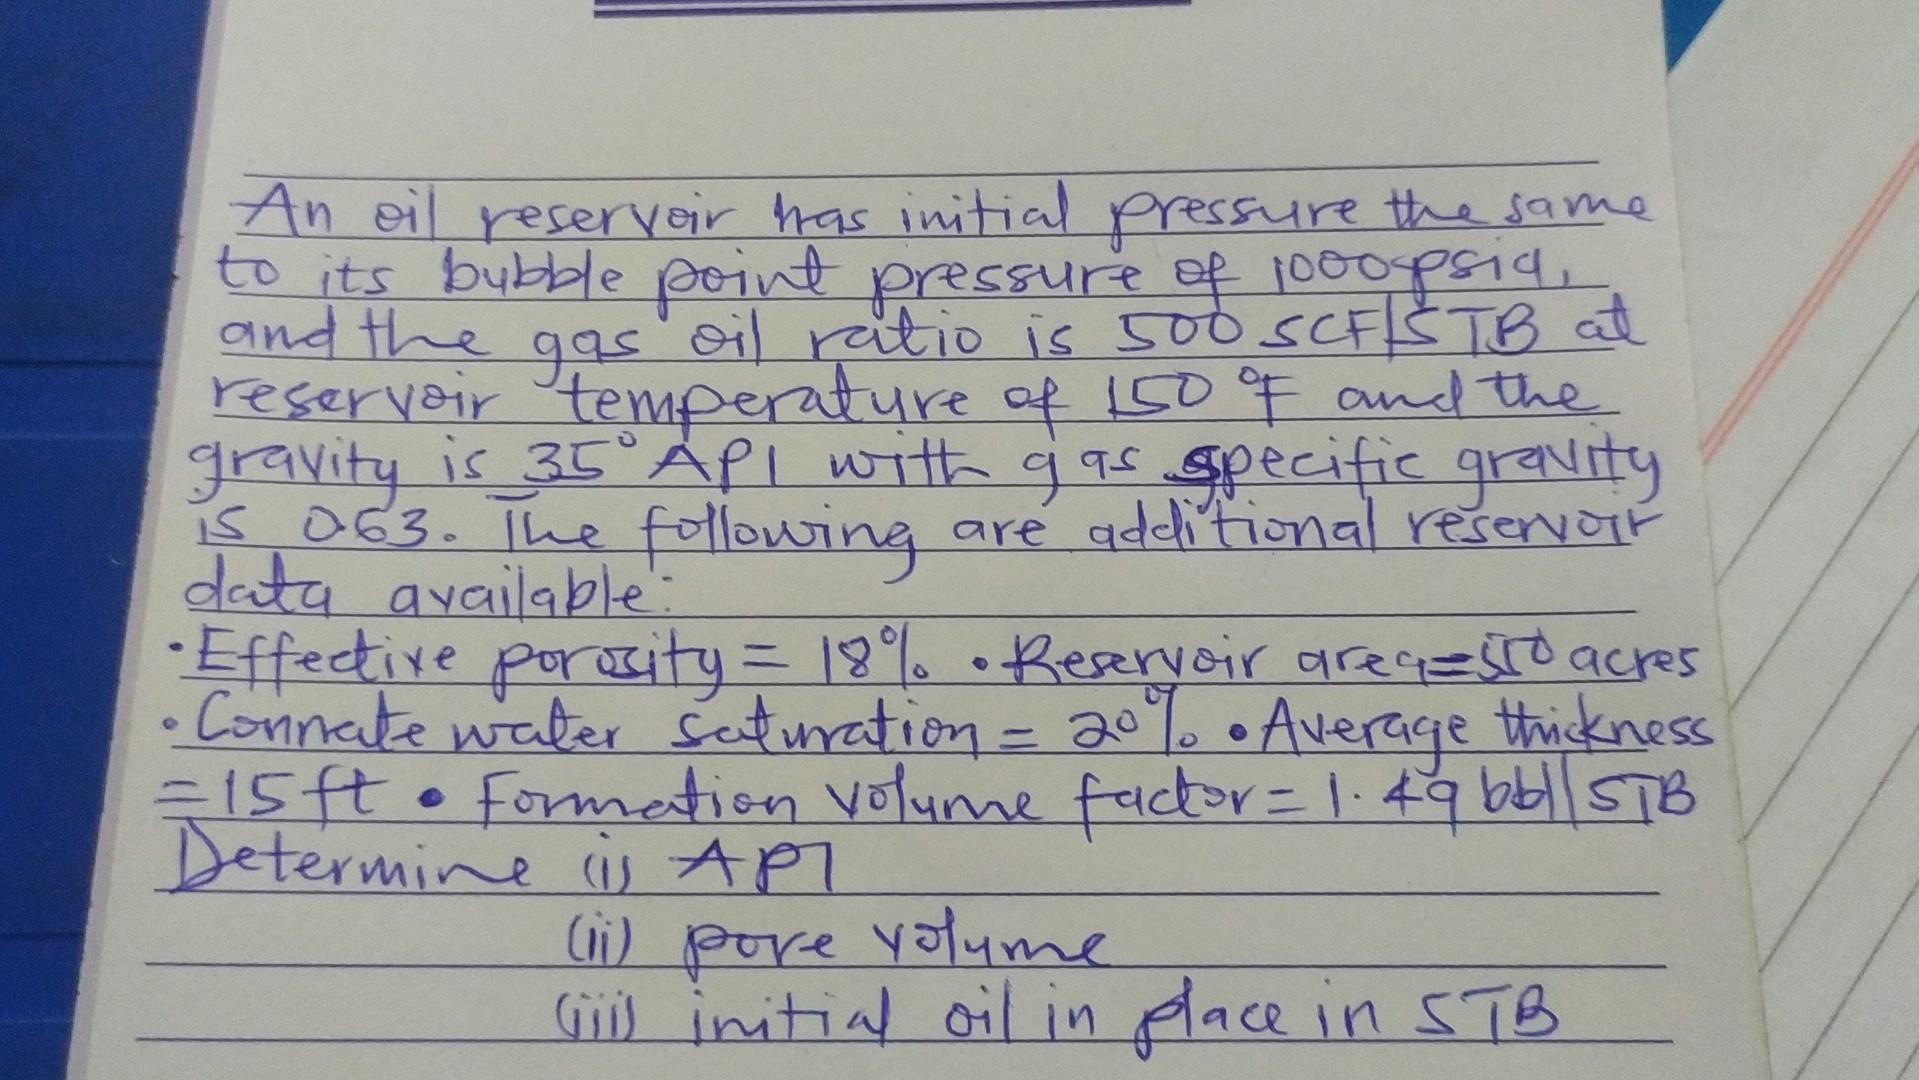 An oil reservoir has initial pressure the same
to its bubble point pressure of 1000psia,
and the gas oil ratio is 500 SCF/STB at
reservoir temperature of 150 °F and the
gravity is 35° API with gas specific gravity
is 0.63. The following are additional reservoir
data available:
• Effective porosity = 18% • Reservoir area = acres
• Connate water saturation = 20% • Average thickness
= 15ft • Formation volume factor = 1.49 bbl/STB
Determine (i) API
(ii) pore volume
(iii) initial oil in place in STB